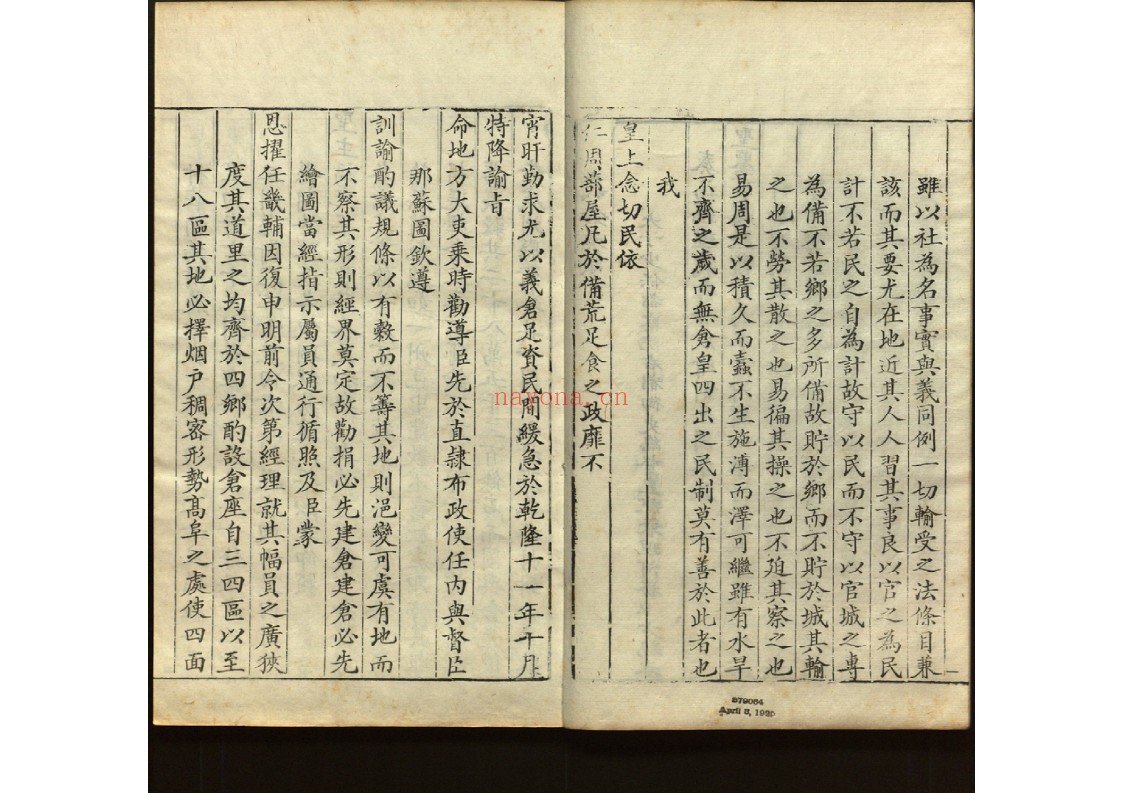 雖以社為名事實與義同例一切輸受之法條目兼
該而其要尤在地近其人人習其事良以官之為民
計不若民之自為計故守以民而不守以官城之專
為備不若鄉之多所備故貯於鄉而不貯於城其輸
之也不勞其散之也易徧其操之也不迫其察之也
易周是以積久而蠹不生施溥而澤可繼雖有水旱
不齊之歲而無倉皇四出之民制莫有善於此者也
我
皇上念切民依
仁周蔀屋凡於備荒足食之政靡不
宵旰勤求尤以義倉足資民間緩急於乾隆十一年十月
特降諭旨
命地方大吏乘時勸導臣先於直隸布政使任内與督臣
那蘇圖欽遵
訓諭酌議規條以有穀而不籌其地則浥變可虞有地而
不察其形則經界莫定故勸捐必先建倉建倉必先
繪圖當經指示屬員通行循照及臣蒙
恩擢任畿輔因復申明前令次第經理就其幅員之廣狹
度其道里之均齊於四鄉酌設倉座自三四區以至
十八區其地必擇烟户稠密形勢髙阜之處使四面
nayona.cn
879084
April 3, 19